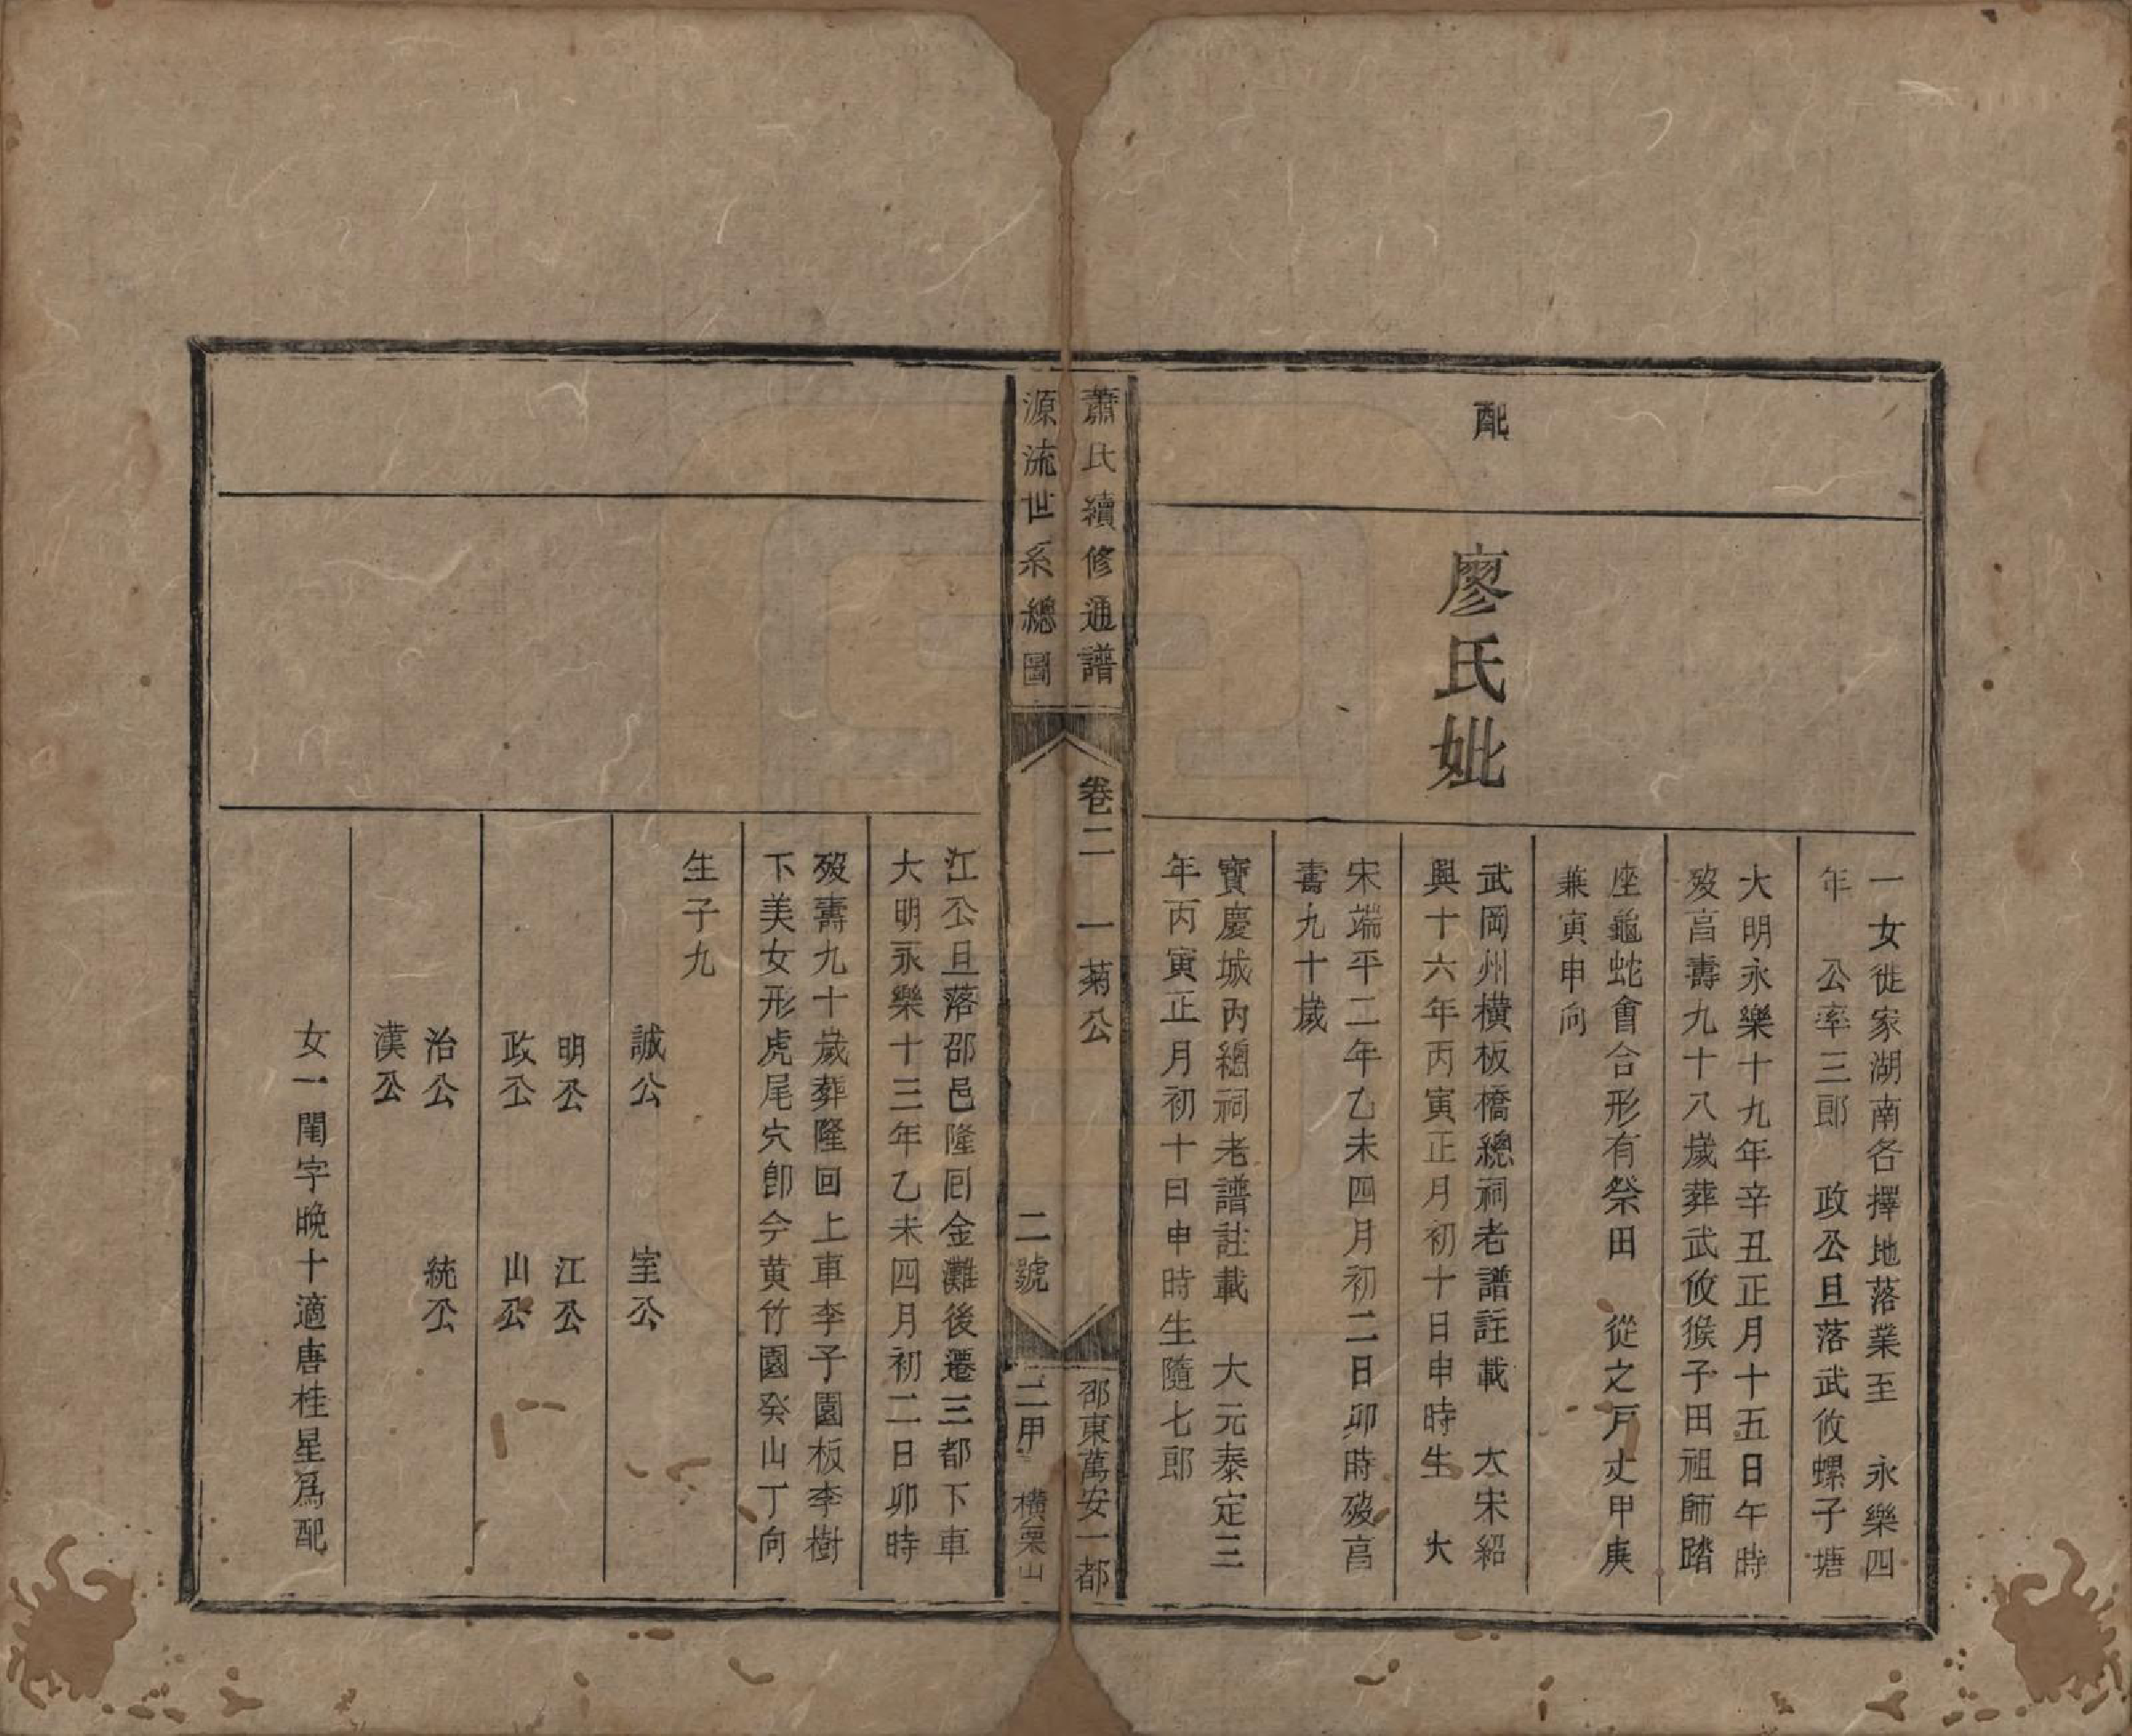 配
廖氏妣
一女徙家湖南各擇地落業至　永樂四
年　公率三郎　政公且落武攸螺子塘
大明永樂十九年辛丑正月十五日午時
歿亯壽九十八歲葬武攸猴子田祖師踏
座龜蛇會合形有祭田　從之戸丈甲庚
兼寅申向
武岡州橫板橋總祠老譜註載　大宋紹
興十六年丙寅正月初十日申時生　大
宋端平二年乙未四月初二日卯時歿亯
壽九十歲
寶慶城內總祠老譜註載　大元泰定三
年丙寅正月初十日申時生隨七郎
蕭氏續修通譜
卷二　一菊公
邵東萬安一都
源流世系總圖
二號
二甲　橫栗山
江公且落邵邑隆回金灘後遷三都下車
大明永樂十三年乙未四月初二日卯時
歿壽九十歲葬隆回上車李子園板李樹
下美女形虎尾穴卽今黃竹園癸山丁向
生子九
誠公　室公
明公　江公
政公　山公
治公　統公
漢公
女一閨字晚十適唐桂星爲配